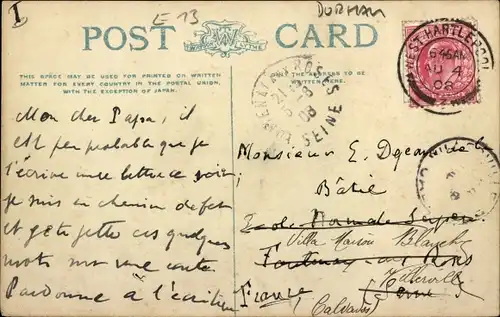 I
E 13
DURHAM
POST CARD
THIS SPACE MAY BE USED FOR PRINTED OR WRITTEN
MATTER FOR EVERY COUNTRY IN THE POSTAL UNION,
WITH THE EXCEPTION OF JAPAN.
THE ADDRESS TO BE
WRITTEN HERE.
WEST HARTLEPOOL
08
ROSES
SEINE
08
Mon cher Papa, il
est peu probable que je
t'écrive une lettre ce soir;
je suis en chemin de fer
et je te jette ces quelques
mots sur une carte.
Pardonne à l'écriture
Monsieur E.
Ecole Normale Super.
Villa Maison Blanche
Fontenay aux Roses
Villerville
Seine
France
(Calvados)